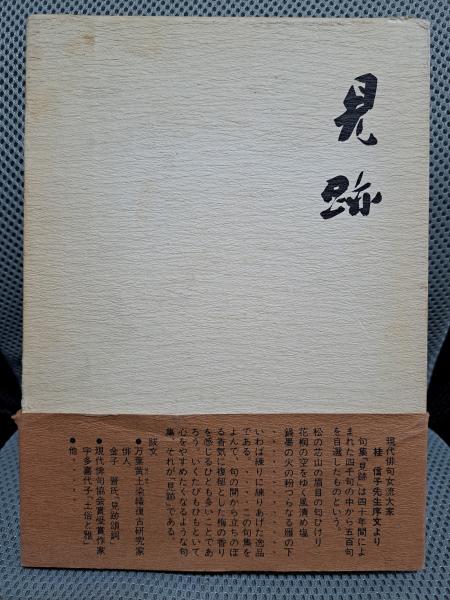 見跡
現代俳句女流大家
桂 信子先生序文より
句集「見跡」は四十年間によ
まれた四千句の中から五百句
を自選したものという。
松の芯山の眉目の匂ひけり
花桐の空をゆく風清め塩
鍋墨の火の粉つらなる雁の下
・・・・・・・・・・
いわば練りに練りあげた逸品
である。・・・・この句集を
よんで、句の間から立ちのぼ
る香気に馥郁とした梅の香り
を感じるひとも多いことであ
ろう。いくたびもひもといて
心をやすめたくなるような句
集、それが「見跡」である。
跋文
●万葉黄土染織復古研究家
俳人
金子 晋氏、「見跡頌詞」
●現代俳句協会賞受賞作家
宇多喜代子、「土俗と雅」
●他・・・・・